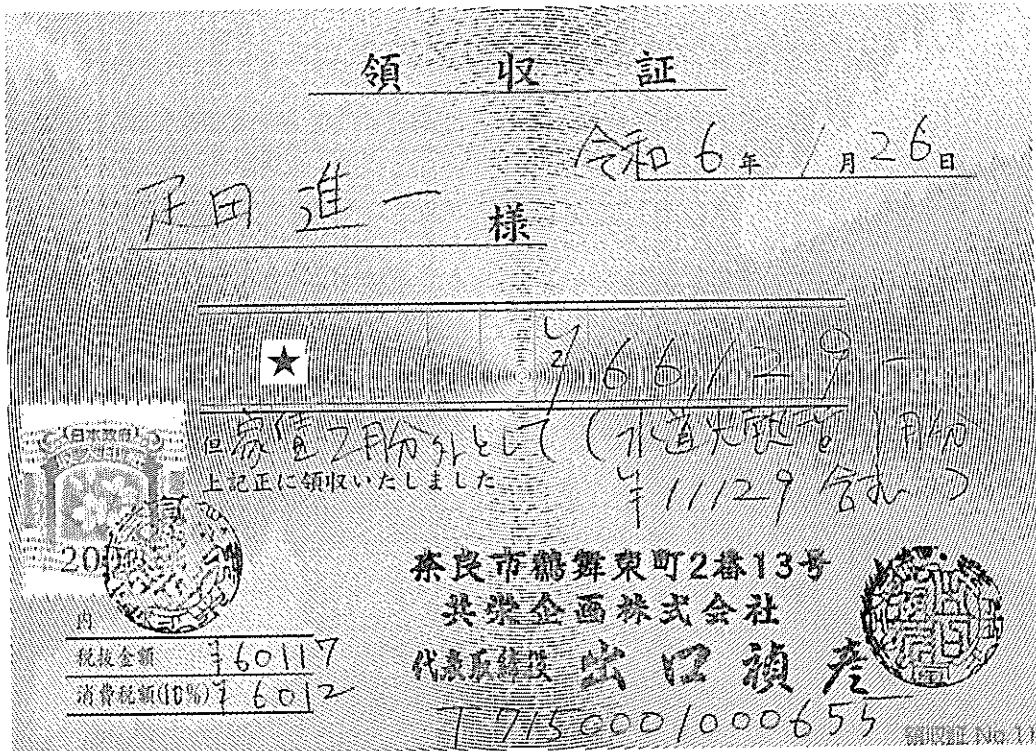 領収証
令和6年1月26日
疋田進一 様
★ ¥66,129-
但 家賃2月分外として (水道光熱費 1月分
上記正に領収いたしました ¥11129 含む)
日本政府
200
内
税抜金額 ¥60117
消費税額(10%) ¥6012
奈良市鶴舞東町2番13号
共栄企画株式会社
代表取締役 出口禎彦
T7150001000655
領収証 No.1